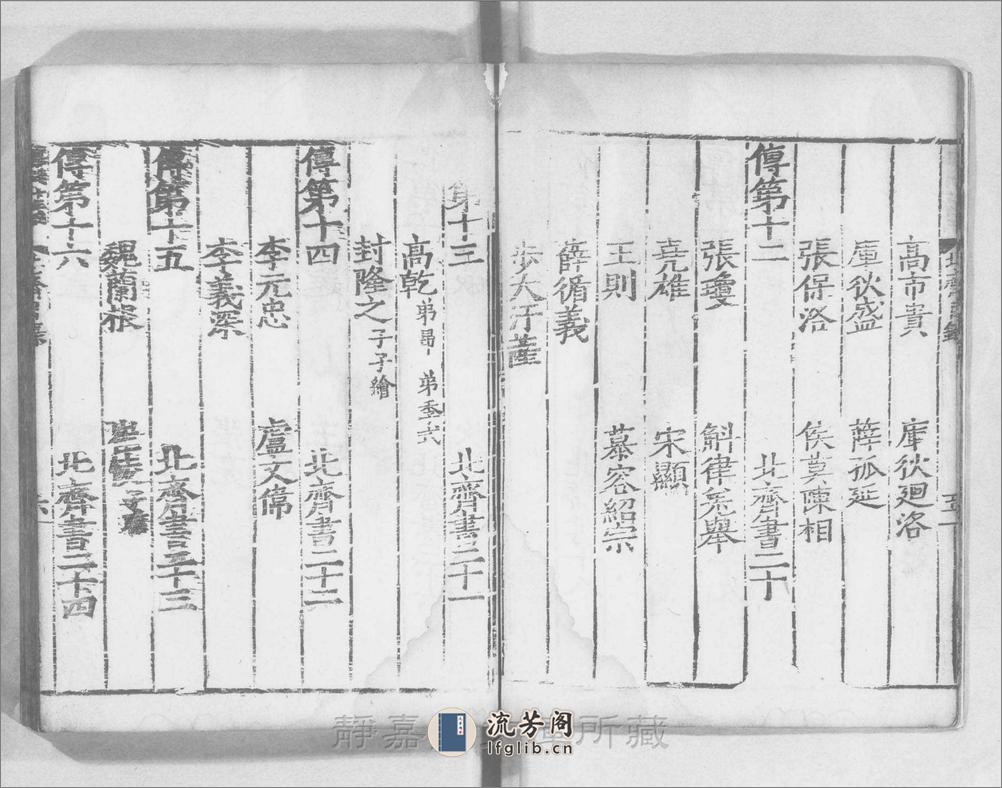 高市貴　庫狄廻洛
庫狄盛　薛孤延
張保洛　侯莫陳相
傳第十二　北齊書二十
張瓊　斛律羌舉
堯雄　宋顯
王則　慕容紹宗
薛循義
步大汗薩
第十三　北齊書二十一
高乾 弟昂 弟季式
封隆之 子子繪
傳第十四　北齊書二十二
李元忠　盧文偉
李義深
傳第十五　北齊書二十三
魏蘭根
傳第十六　北齊書二十四
靜嘉 所藏
流芳阁
lfglib.cn